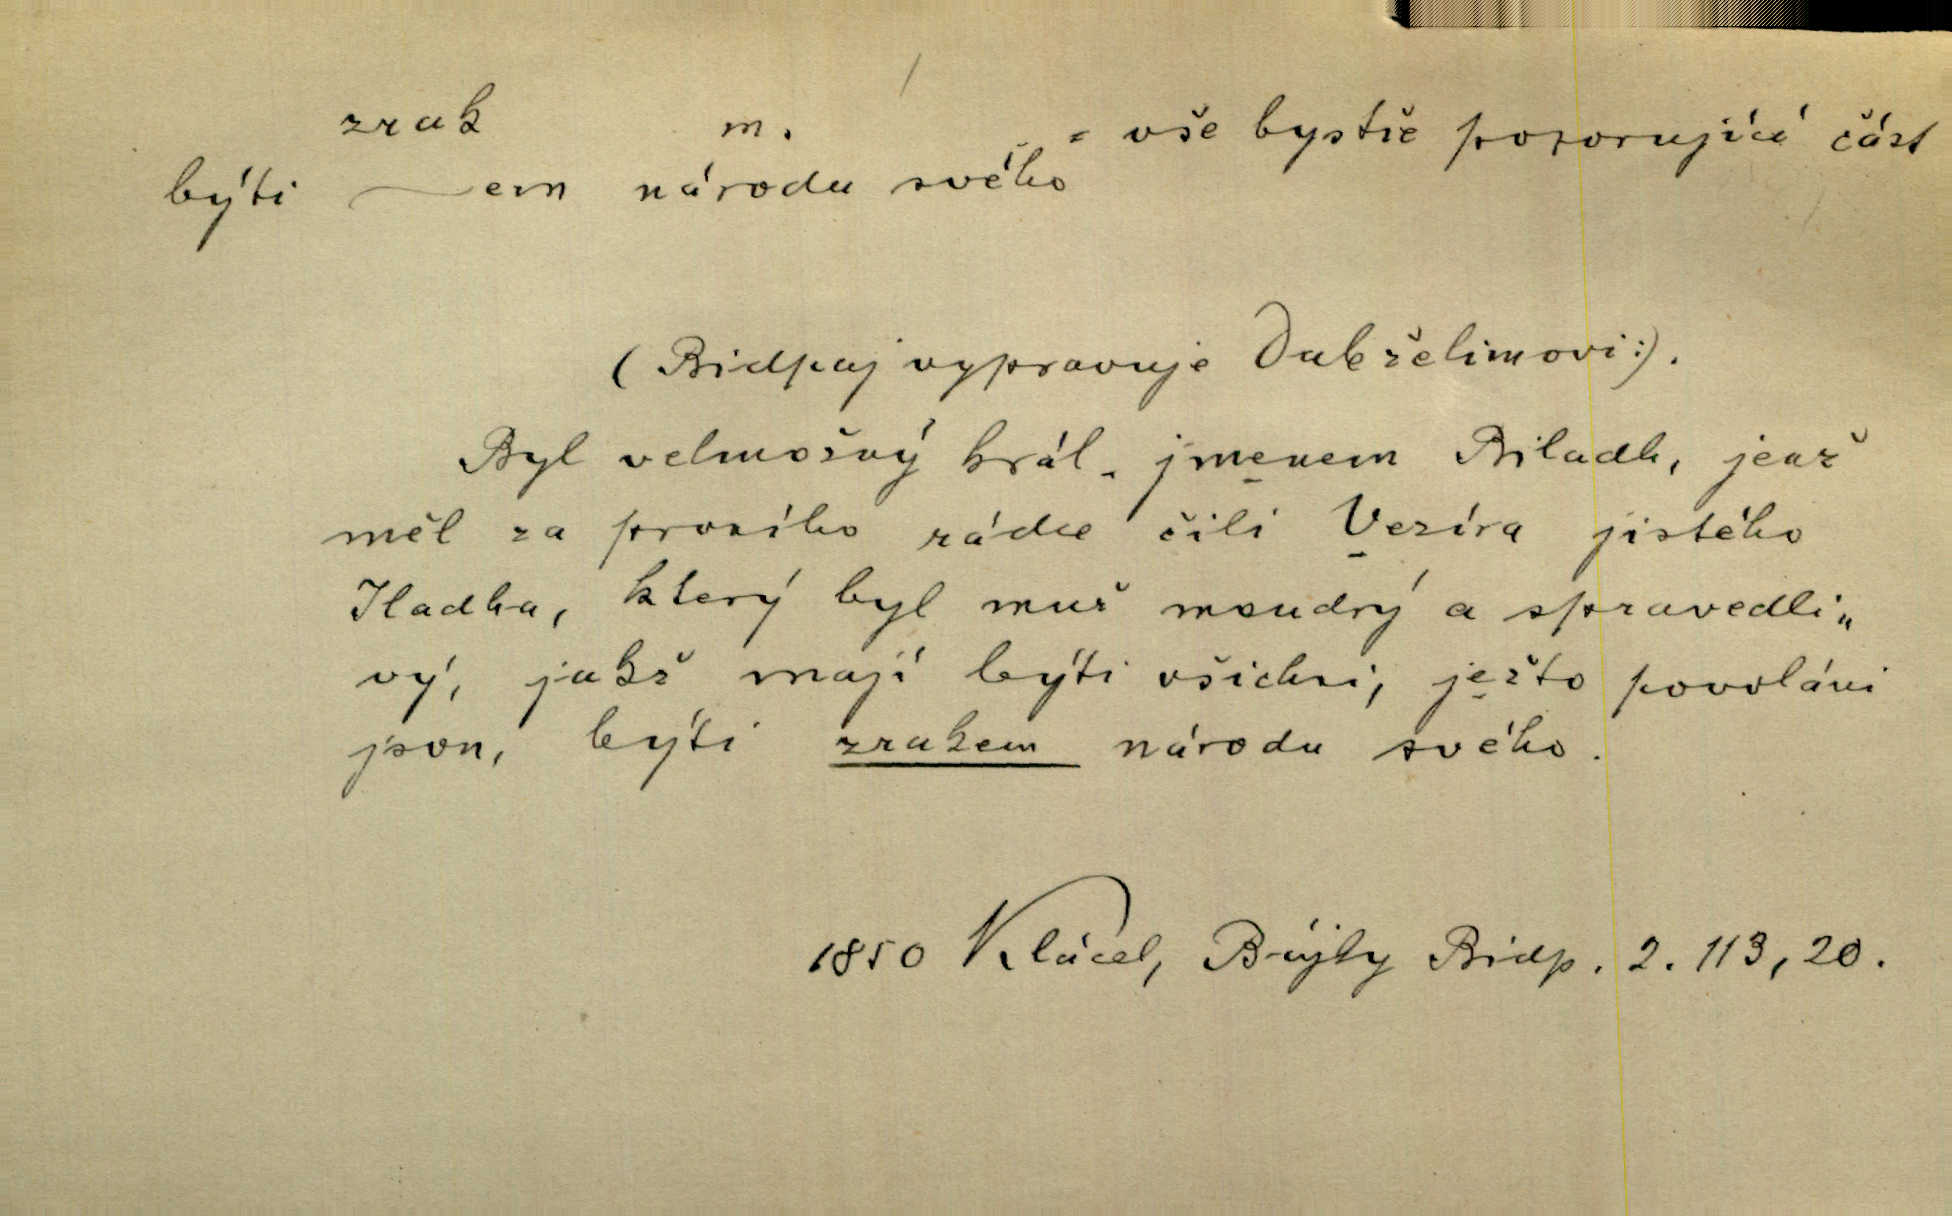 zrak m.
býti ~em národu svého = vše bystře pozorující část
(Bidpaj vypravuje Dabželimovi:).
Byl velmožný král. jmenem Biladh, jenž
měl za prvního rádce čili Vezíra jistého
Iladha, který byl muž moudrý a spravedli„
vý, jakž mají býti všichni, ježto povoláni
jsou, býti zrakem národu svého.
1850 Klácel, Bájky Bidp. 2. 113, 20.